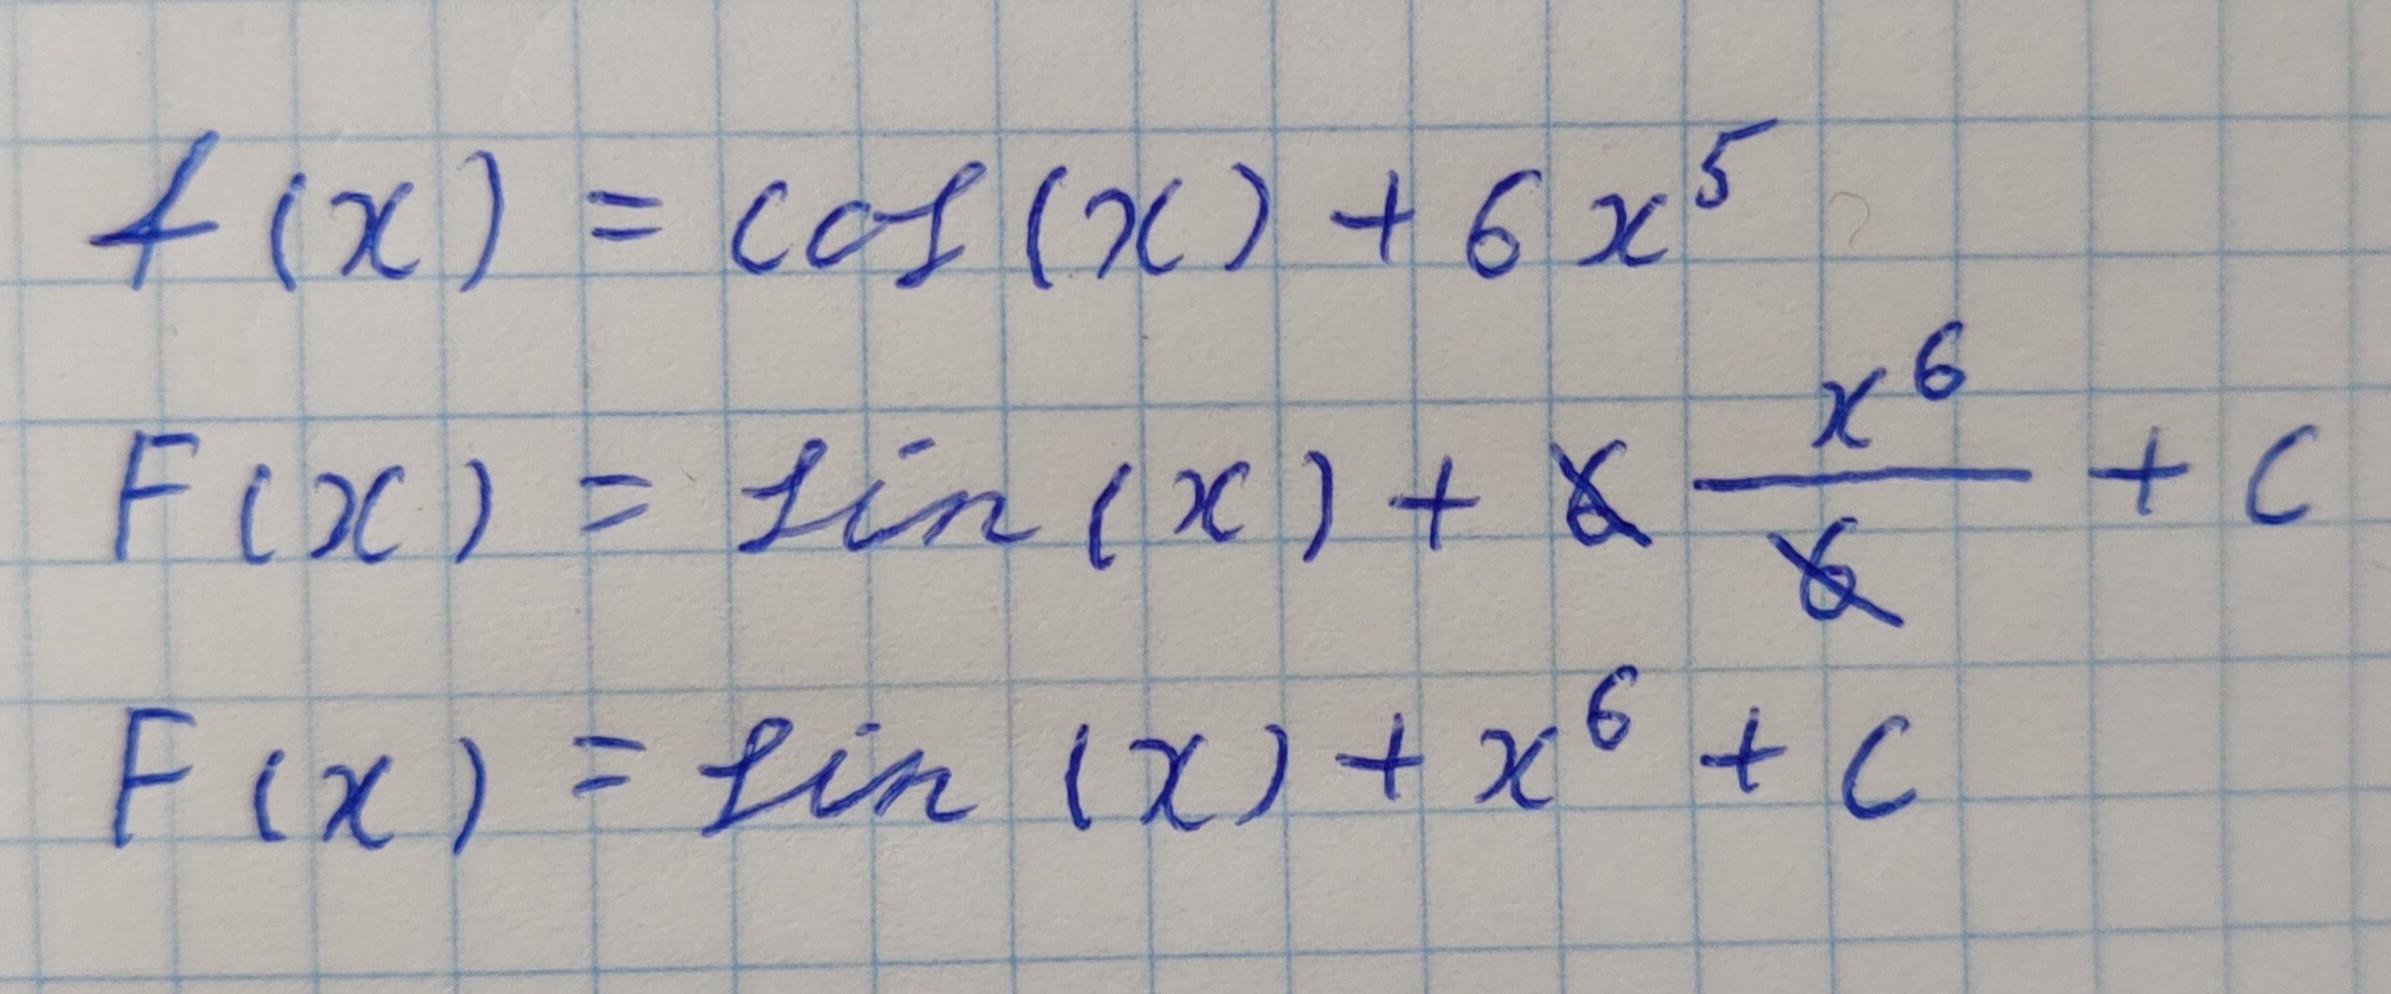 f(x) = cos(x) + 6x⁵
F(x) = sin(x) + 6 x⁶/6 + C
F(x) = sin(x) + x⁶ + C